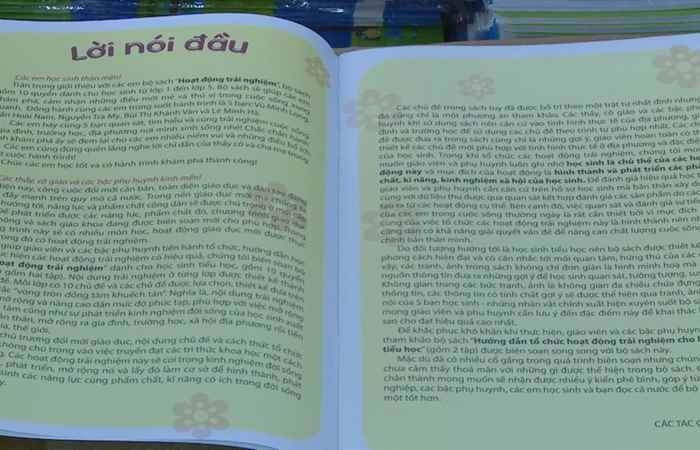 Lời nói đầu
Các em học sinh thân mến!
Trân trọng giới thiệu với các em bộ sách "Hoạt động trải nghiệm", bộ sách
gồm 10 quyển dành cho học sinh từ lớp 1 đến lớp 5. Bộ sách sẽ giúp các em
khám phá, cảm nhận những điều mới mẻ và thú vị trong cuộc sống xung
quanh. Đồng hành cùng các em trong suốt hành trình là 5 bạn: Vũ Minh Long,
Hoài Nam, Nguyễn Trà My, Bùi Thị Khánh Vân và Lê Minh Hà.
Các em hãy cùng 5 bạn quan sát, tìm hiểu và cùng trải nghiệm cuộc sống
gia đình, trường học, địa phương nơi mình sinh sống nhé! Chắc chắn hành
trình khám phá ấy sẽ đem lại cho các em nhiều niềm vui và những điều bổ ích.
Các em cũng đừng quên lắng nghe lời chỉ dẫn của thầy cô và cha mẹ trong
cuộc hành trình!
Chúc các em học tốt và có hành trình khám phá thành công!
Các thầy, cô giáo và các bậc phụ huynh kính mến!
Hiện nay, công cuộc đổi mới căn bản, toàn diện giáo dục và đào tạo đang
đẩy mạnh trên quy mô cả nước. Trong nền giáo dục mới mà chúng ta
hướng tới, năng lực và phẩm chất công dân sẽ được chú trọng ở mỗi con
để phát triển được các năng lực, phẩm chất đó, chương trình giáo dục
thông và sách giáo khoa đang được biên soạn mới cho phù hợp. Trong
trình này sẽ có nhiều môn học, hoạt động giáo dục mới được thực
trong đó có hoạt động trải nghiệm.
giúp giáo viên và các bậc phụ huynh tiến hành tổ chức, hướng dẫn học
thực hiện các hoạt động trải nghiệm có hiệu quả, chúng tôi biên soạn bộ
Hoạt động trải nghiệm" dành cho học sinh tiểu học, gồm 10 quyển
gồm hai tập). Nội dung trải nghiệm ở từng lớp được thiết kế thành
đề. Mỗi lớp có 10 chủ đề và các chủ đề được lựa chọn, thiết kế dựa trên
tắc "vòng tròn đồng tâm khuếch tán". Nghĩa là, nội dung trải nghiệm
mở rộng và nâng cao dần mức độ phức tạp, phù hợp với việc mở rộng
tâm cũng như sự phát triển kinh nghiệm đời sống của học sinh xuất
bản thân, mở rộng ra gia đình, trường học, xã hội địa phương rồi tiến
gia, thế giới.
chủ trương đổi mới giáo dục, nội dung chủ đề và cách thức tổ chức
không chú trọng vào việc truyền đạt các tri thức khoa học một cách
Các hoạt động trải nghiệm này sẽ coi trọng kinh nghiệm đời sống
phát triển, mở rộng nó và lấy đó làm cơ sở để hình thành, phát
sinh các năng lực cùng phẩm chất, kĩ năng có ích trong đời sống
Các chủ đề trong sách tuy đã được bố trí theo một trật tự nhất định nhưng
đó cũng chỉ là một phương án tham khảo. Các thầy, cô giáo và các bậc phụ
huynh khi sử dụng sách nên căn cứ vào tình hình thực tế của địa phương, gia
đình và trường học để sử dụng các chủ đề theo trình tự phù hợp nhất. Các chủ
đề được đưa ra trong sách cũng chỉ là những gợi ý, giáo viên hoàn toàn có thể
thiết kế các chủ đề mới phù hợp với tình hình thực tế ở địa phương và đặc điểm
của học sinh. Trong khi tổ chức các hoạt động trải nghiệm, chúng tôi mong
muốn giáo viên và phụ huynh luôn ghi nhớ học sinh là chủ thể của các hoạt
động này và mục đích của hoạt động là hình thành và phát triển các phẩm
chất, kĩ năng, kinh nghiệm xã hội của học sinh. Để đánh giá hiệu quả học tập
giáo viên và phụ huynh cần căn cứ trên hồ sơ học sinh mà bản thân xây dựng
cùng với dữ liệu thu được qua quan sát kết hợp đánh giá các sản phẩm do các em
tạo ra từ các hoạt động cụ thể. Bên cạnh đó, việc quan sát và đánh giá sự tiến
của các em trong cuộc sống thường ngày là rất cần thiết bởi vì mục đích
cùng của việc tổ chức các hoạt động trải nghiệm này là hình thành nên
công dân có khả năng giải quyết vấn đề để nâng cao chất lượng cuộc sống
chính bản thân mình.
Do đối tượng hướng tới là học sinh tiểu học nên bộ sách được thiết
phong cách hiện đại và có cân nhắc tới mối quan tâm, hứng thú của các
vậy, các tranh, ảnh trong sách không chỉ đơn giản là hình minh hoạ mà
nguồn thông tin đưa ra những gợi ý để học sinh quan sát, tưởng tượng, suy
Không gian trong các bức tranh, ảnh là không gian đa chiều chứa đựng
thông tin, các thông tin có tính chất gợi ý sẽ được thể hiện qua tranh, ảnh
nói của 5 bạn học sinh - những nhân vật chính xuất hiện xuyên suốt bộ
mong giáo viên và phụ huynh cần lưu ý đến đặc điểm này để khai thác
sao cho đạt hiệu quả cao nhất.
Để khắc phục khó khăn khi thực hiện, giáo viên và các bậc phụ huynh
tham khảo bộ sách "Hướng dẫn tổ chức hoạt động trải nghiệm cho
tiểu học" (gồm 2 tập) được biên soạn song song với bộ sách này.
Mặc dù đã có nhiều cố gắng trong quá trình biên soạn nhưng chúng
chưa cảm thấy thoả mãn với những gì được thể hiện trong bộ sách.
chân thành mong muốn sẽ nhận được nhiều ý kiến phê bình, góp ý từ
nghiệp, các bậc phụ huynh, các em học sinh và bạn đọc cả nước để bộ
một tốt hơn.
CÁC TÁC G